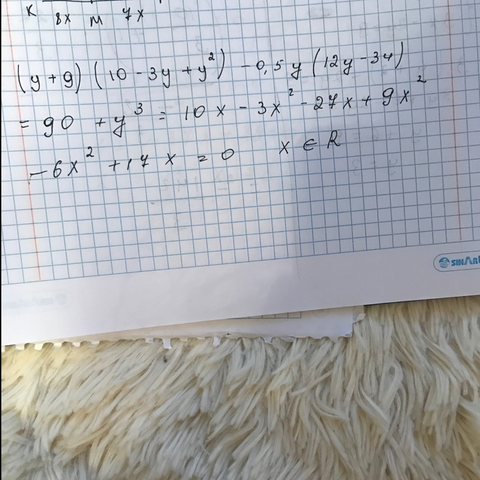 K 8x M 7x
(y + 9) (10 - 3y + y²) - 0,5 y (12y - 34)
= 90 + y³ = 10x - 3x² - 27x + 9x²
- 6x² + 17x = 0 x ∈ R